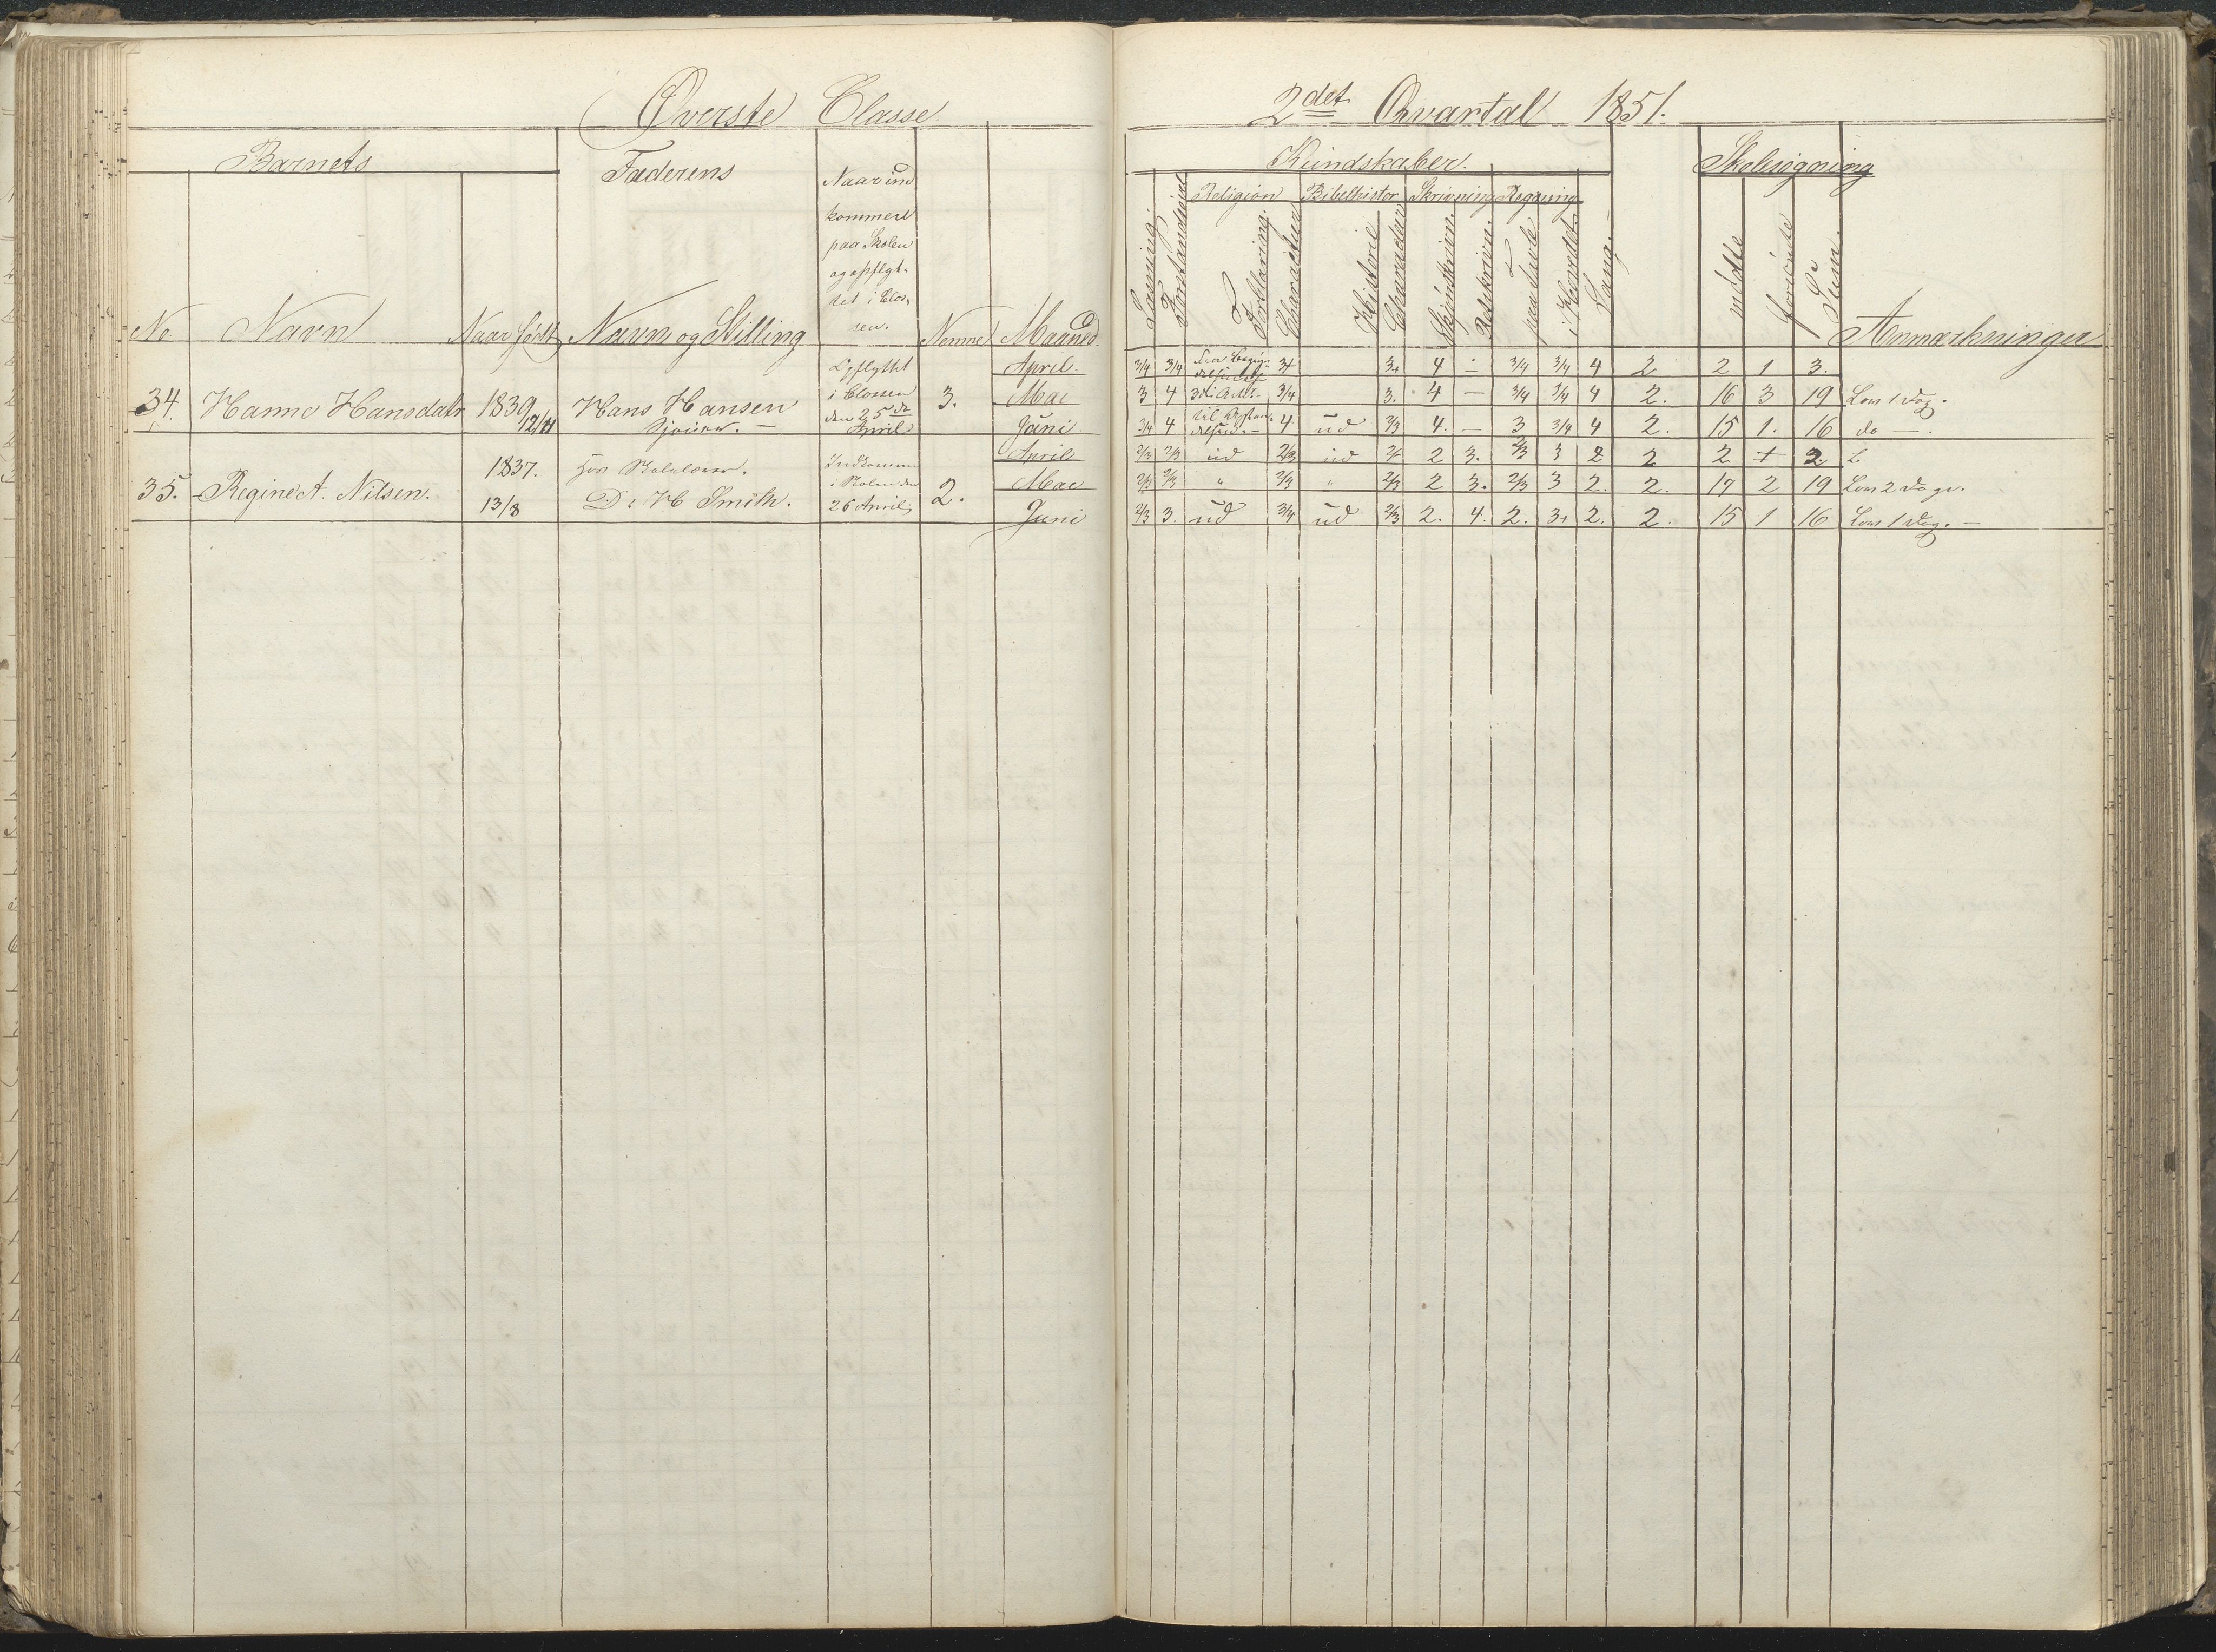 Øverste Classe
2det Qvartal 1851.
Barnets
Faderens
Naar ind
kommen
paa Skolen
og opflyt-
tet i Clas-
sen.
No Navn Naar født Navn og Stilling Nemme Maaned
Kundskaber.
Skolesøgning
Religion Bibelhistor Skrivning Regning
Læsning
Forstandighed
Forklaring.
Character
Historie
Character
Skjønskrivn.
Retskrivn.
paa Tavle
i Hovedet
Sang.
mødte
forsømte
Sum.
Anmærkninger
Opflyttet April. 3/4 3/4 3+ 3+ 4 - 3/4 3/4 4 2 2 1 3.
34. Hanne Hansdatr 1839 Hans Hansen i Classen 3. Mai 3 4 3/4 3. 4 - 3/4 3/4 4 2. 16 3 19 Lov 1 Dag.
12/11 den 25de April Juni 3/4 4 4. ud 3/3 4. - 3 3/4 4 2. 15 1. 16 do -
1837. Indkommen April 2/3 2/3 ud 2/3 ud 2 3. 2/3 3 2 2 2 + 2. L
35. Regine A. Nilsen. i Skolen den 2. Mai 2/3 2/3 " 2/3 " 2/3 2 3. 2/3 3 2. 2. 17 2 19 Lov 2 Dage.
13/8 D: H Smith. 26 April, Juni 2/3 3. ud 3/4 ud 2/3 2. 4. 2. 3+ 2. 2. 15 1 16 Lov 1 Dag. -